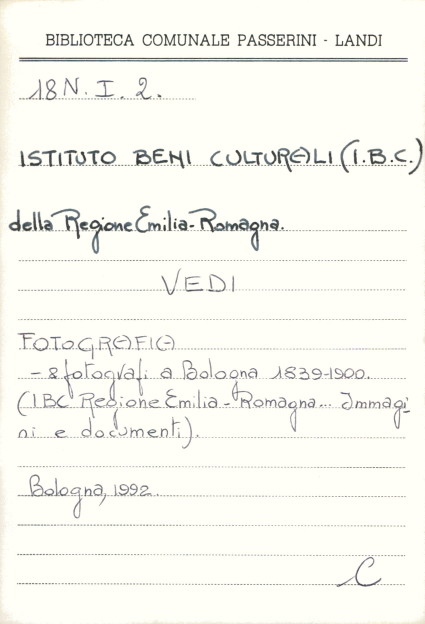 BIBLIOTECA COMUNALE PASSERINI - LANDI
18 N. I. 2.
ISTITUTO BENI CULTURALI (I.B.C.)
della Regione Emilia-Romagna.
VEDI
FOTOGRAFIA
- & fotografi a Bologna 1839-1900.
(IBC Regione Emilia-Romagna... Immagi-
ni e documenti).
Bologna, 1992.
C